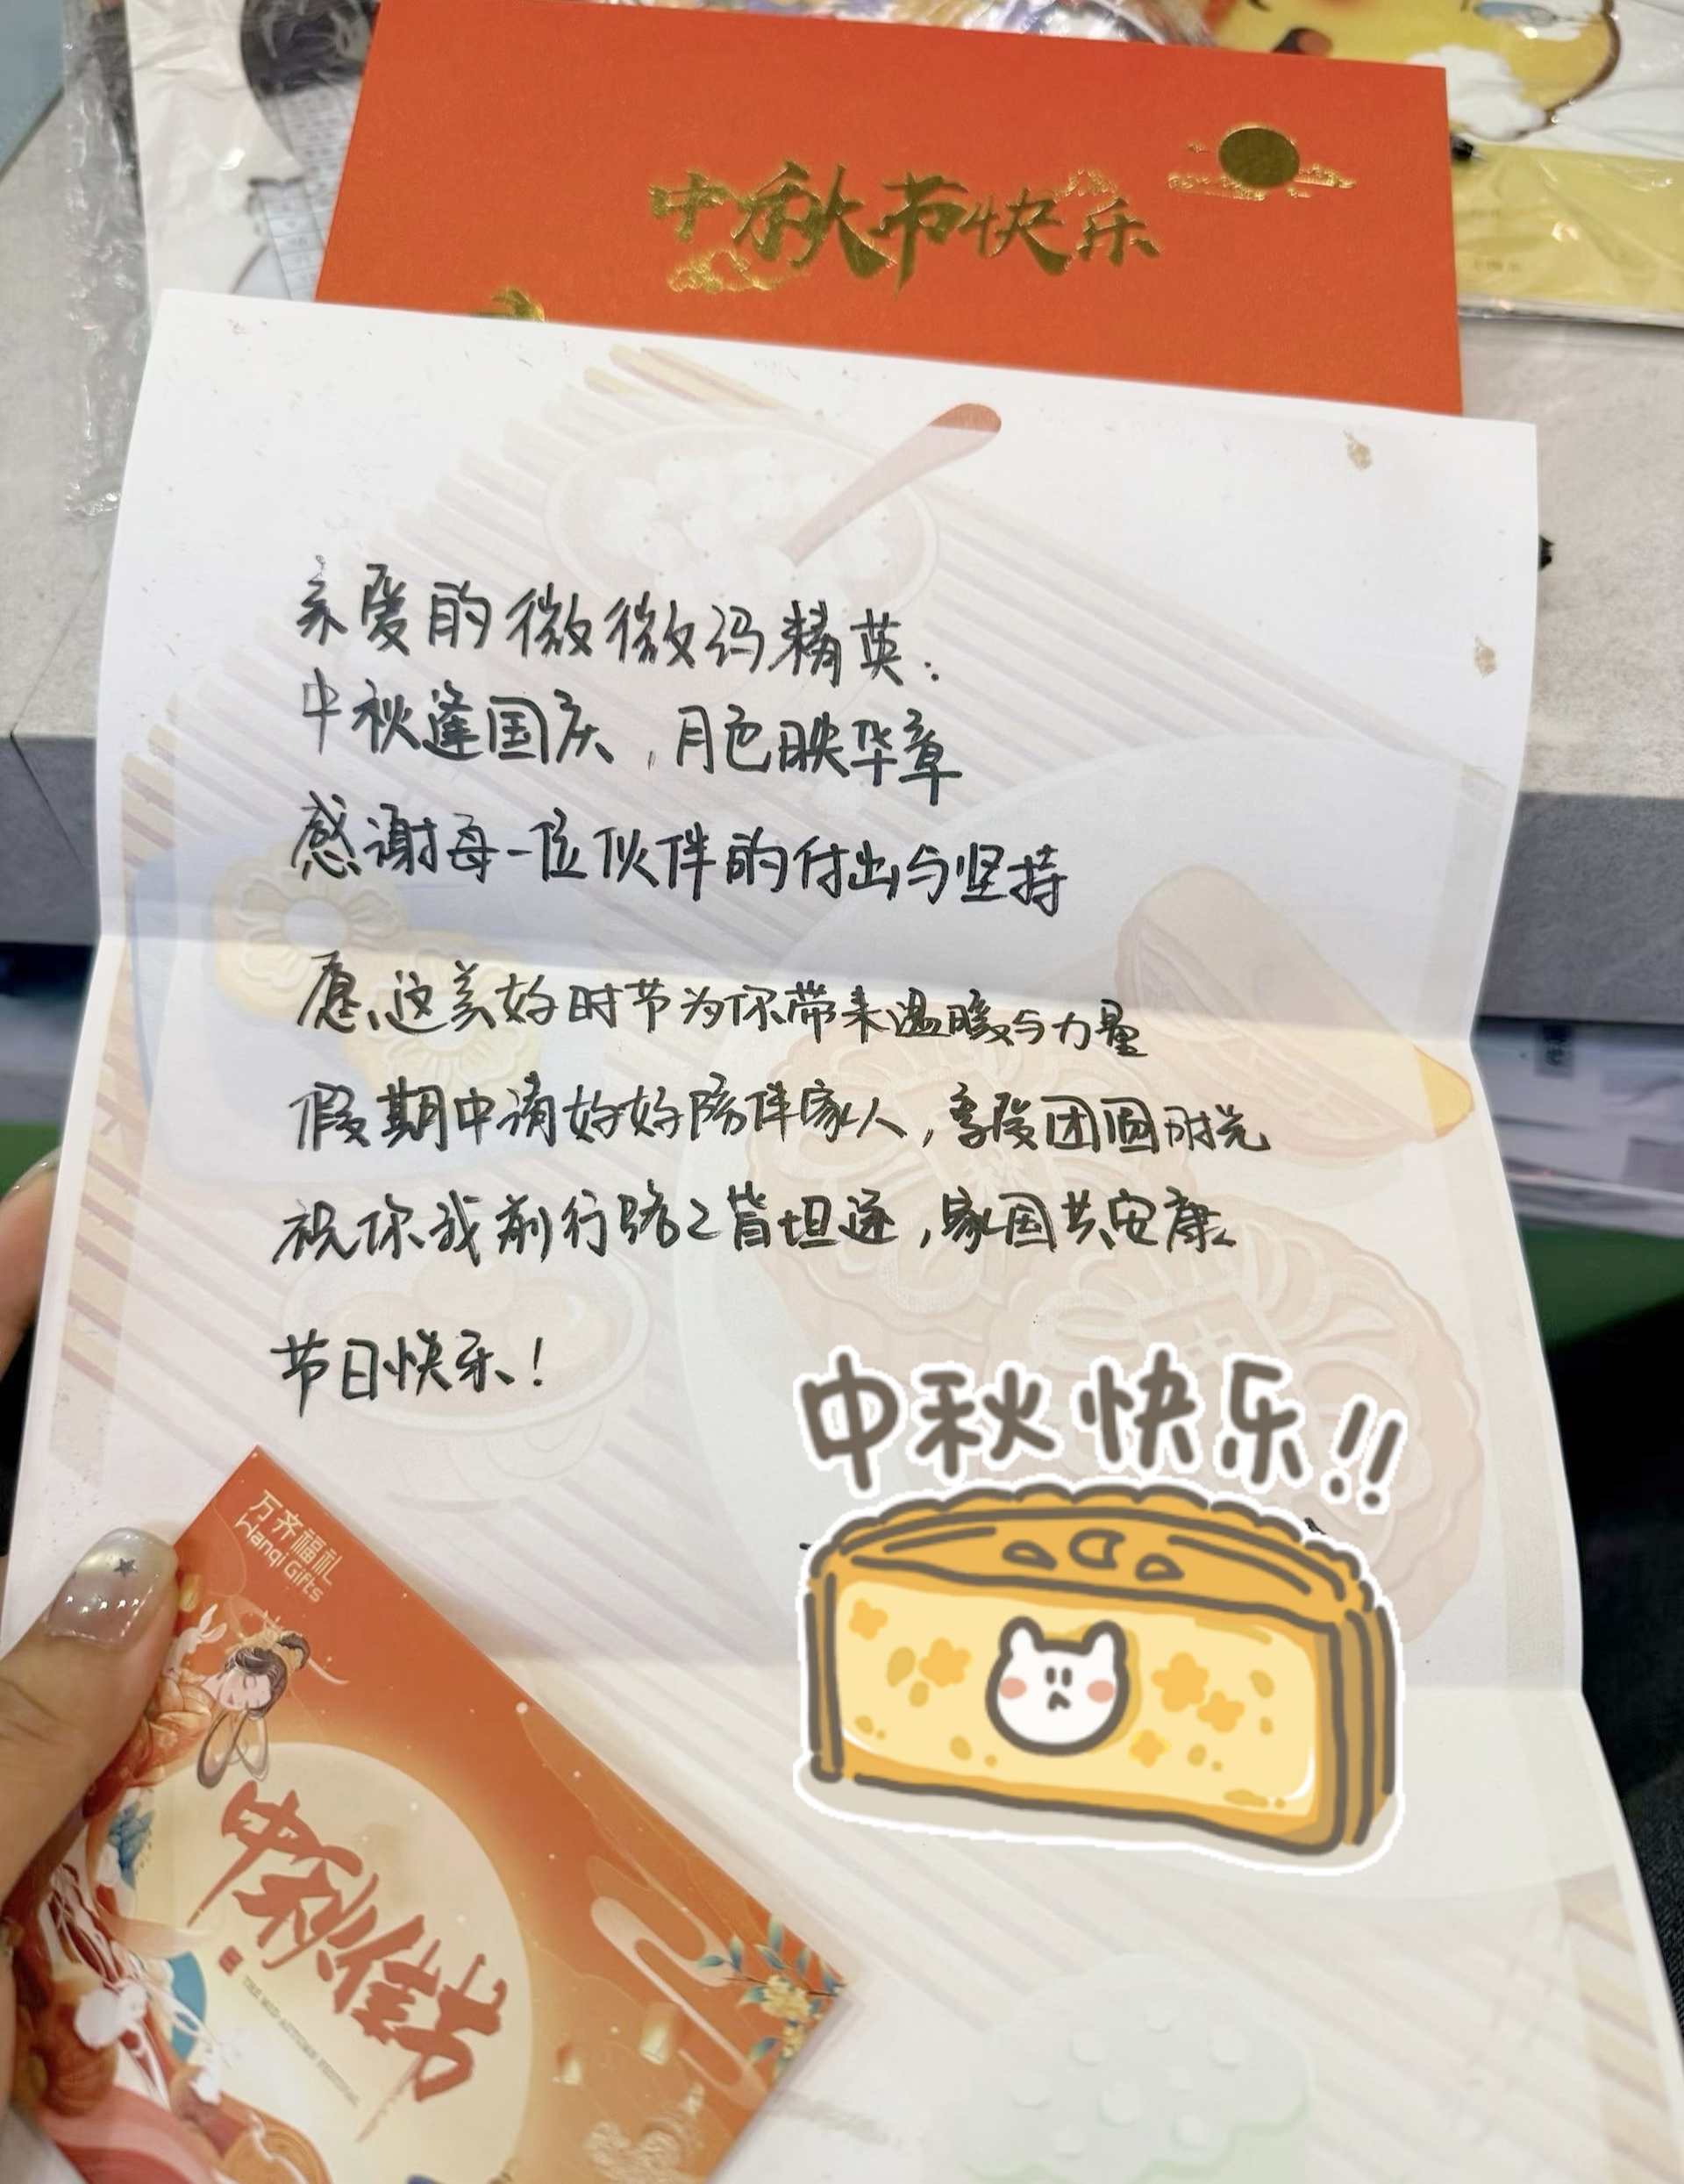 中秋节快乐
亲爱的微微码精英:
中秋逢国庆,月色映华章
感谢每一位伙伴的付出与坚持
愿这美好时节为你带来温暖与力量
假期中请好好陪伴家人,享受团圆时光
祝你我前行路之皆坦途,家国共安康
节日快乐!
中秋快乐!!
万齐福礼
Wanqi Gifts
中秋佳节
THE MID-AUTUMN FESTIVAL